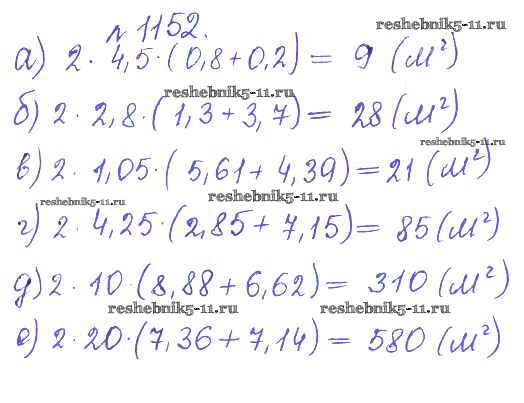 № 1152.
reshebnik5-11.ru
а) 2 · 4,5 · (0,8 + 0,2) = 9 (м²)
reshebnik5-11.ru
б) 2 · 2,8 · (1,3 + 3,7) = 28 (м²)
reshebnik5-11.ru
в) 2 · 1,05 · (5,61 + 4,39) = 21 (м²)
reshebnik5-11.ru
reshebnik5-11.ru
г) 2 · 4,25 · (2,85 + 7,15) = 85 (м²)
д) 2 · 10 · (8,88 + 6,62) = 310 (м²)
reshebnik5-11.ru
reshebnik5-11.ru
е) 2 · 20 · (7,36 + 7,14) = 580 (м²)